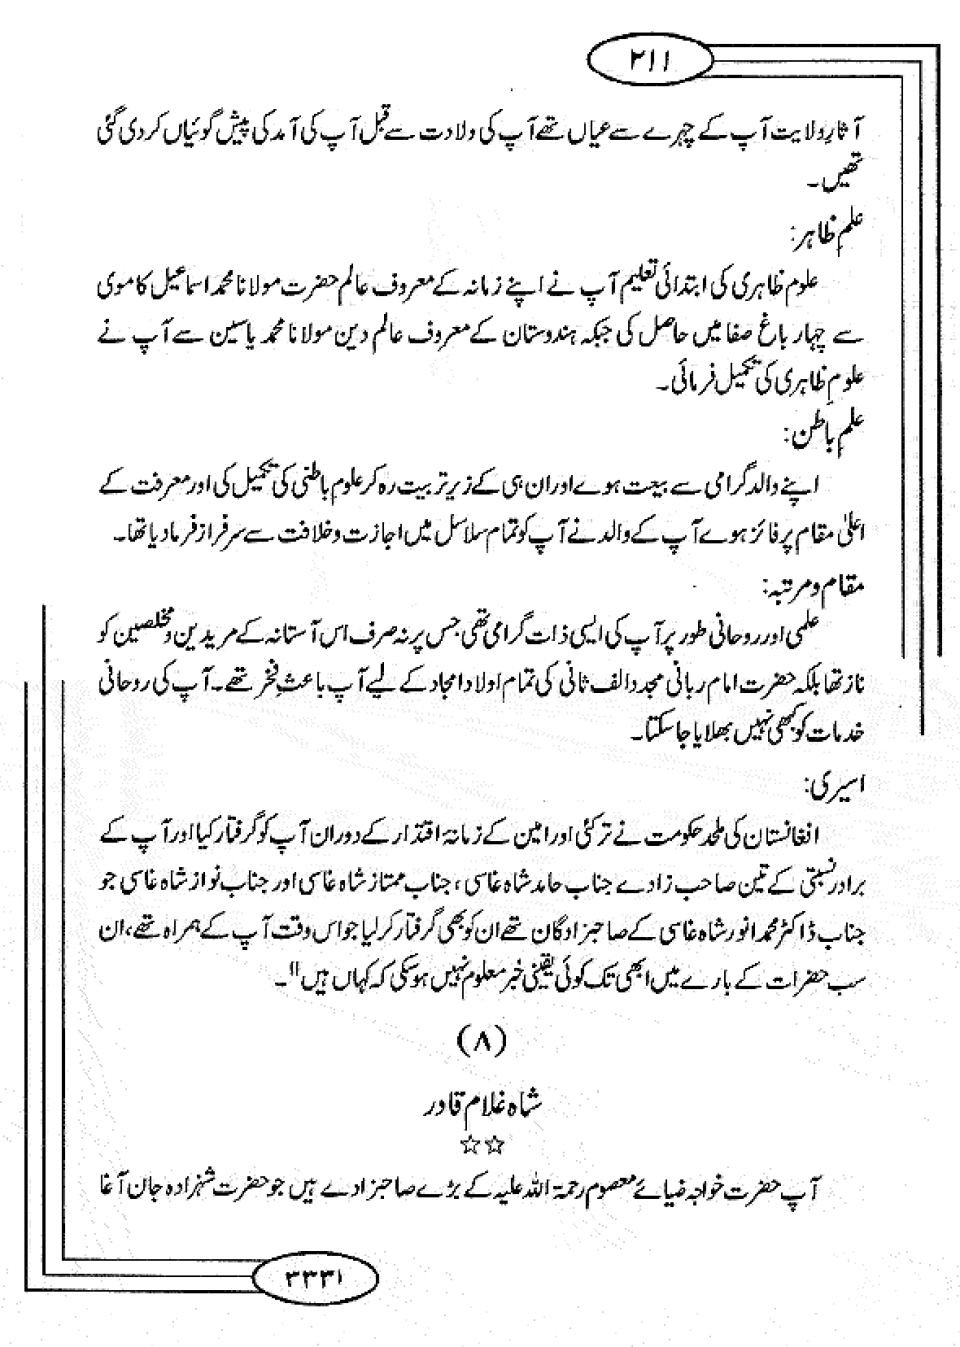 ۲۱۱
آثارِ ولایت آپ کے چہرے سے عیاں تھے آپ کی ولادت سے قبل آپ کی آمد کی پیش گوئیاں کر دی گئی
تھیں۔
علمِ ظاہر:
علوم ظاہری کی ابتدائی تعلیم آپ نے اپنے زمانہ کے معروف عالم حضرت مولانا محمد اسماعیل کاموی
سے چہار باغ صفا میں حاصل کی جبکہ ہندوستان کے معروف عالم دین مولانا محمد یاسین سے آپ نے
علومِ ظاہری کی تکمیل فرمائی۔
علمِ باطن:
اپنے والد گرامی سے بیعت ہوے اور ان ہی کے زیر تربیت رہ کر علوم باطنی کی تکمیل کی اور معرفت کے
اعلیٰ مقام پر فائز ہوے آپ کے والد نے آپ کو تمام سلاسل میں اجازت و خلافت سے سرفراز فرما دیا تھا۔
مقام و مرتبہ:
علمی اور روحانی طور پر آپ کی ایسی ذات گرامی تھی جس پر نہ صرف اس آستانہ کے مریدین و مخلصین کو
ناز تھا بلکہ حضرت امام ربانی مجدد الف ثانی کی تمام اولاد امجاد کے لیے آپ باعثِ فخر تھے۔ آپ کی روحانی
خدمات کو کبھی نہیں بھلایا جا سکتا۔
اسیری:
افغانستان کی ملحد حکومت نے ترکئی اور امین کے زمانۂ اقتدار کے دوران آپ کو گرفتار کیا اور آپ کے
برادر نسبتی کے تین صاحب زادے جناب حامد شاہ غاسی، جناب ممتاز شاہ غاسی اور جناب نواز شاہ غاسی جو
جناب ڈاکٹر محمد انور شاہ غاسی کے صاحبزادگان تھے ان کو بھی گرفتار کر لیا جو اس وقت آپ کے ہمراہ تھے، ان
سب حضرات کے بارے میں ابھی تک کوئی یقینی خبر معلوم نہیں ہو سکی کہ کہاں ہیں ۱۱۔
(۸)
شاہ غلام قادر
☆☆
آپ حضرت خواجہ ضیائے معصوم رحمۃ اللہ علیہ کے بڑے صاحبزادے ہیں جو حضرت شہزادہ جان آغا
۳۳۳۱